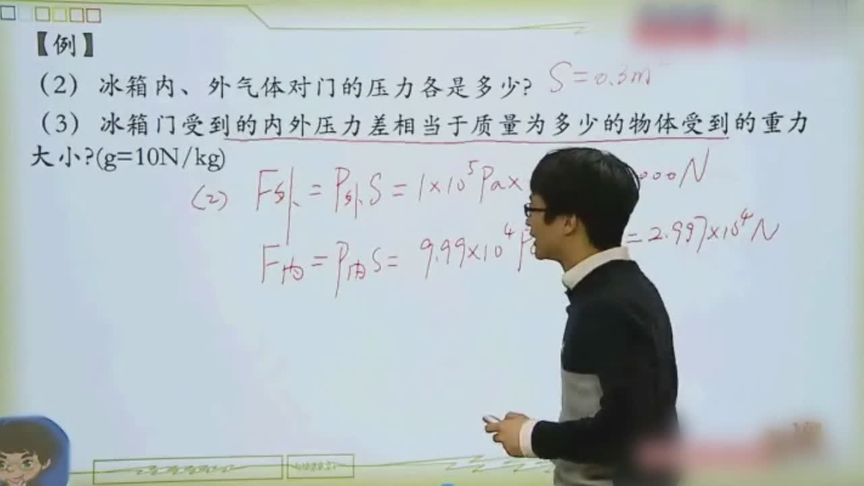 【例】
（2）冰箱内、外气体对门的压力各是多少？ S=0.3m
（3）冰箱门受到的内外压力差相当于质量为多少的物体受到的重力
大小?(g=10N/kg)
(2) F外=P外S=1×10⁵Pa× 000N
F内=P内S= 9.99×10⁴ =2.997×10⁴N